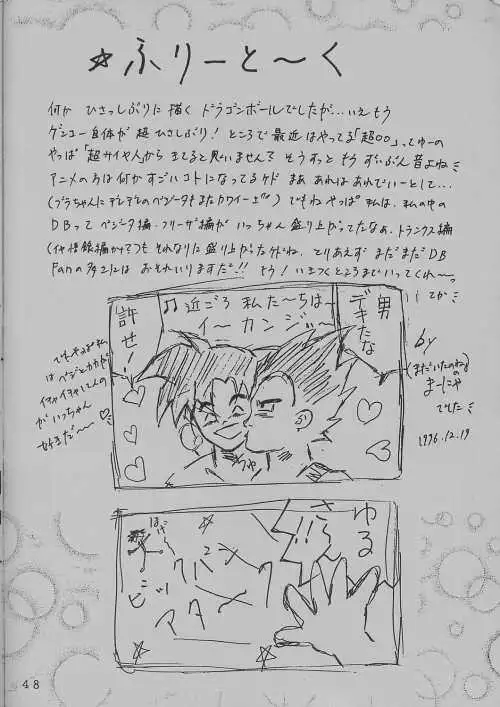 ☆ふりーと〜く
何か ひさっしぶりに描く ドラゴンボールでしたが…いえもう
ゲンコー自体が超ひさしぶり! ところで最近はやってる「超〇〇」ってゆーの
やっぱ「超サイヤ人」からきてると思いません? そうすっと もう ずいぶん昔よね
アニメの方は何かすごいコトになってるケド まあ あれはあれでいーとして…
(ブラちゃんにデレデレのベジータもまたカワイー!!) でもねやっぱ 私は、私の中の
DBって ベジータ編・フリーザ編が いっちゃん盛り上がってたなぁ、トランクス編
もそれなりに盛り上がったけどね、とりあえず まだまだDB
Fanの多さには おそれいりますだ!! もう! いきつくところまでいってくれ〜っ
てか
男
デキたな
近ごろ 私た〜ちは〜
イ〜カンジ〜
♫
許せ!
ちゅ
でもやっぱ私
はベジとカカが
イチャイチャしてんの
がいっちゃん
好きだ〜
by
(まだいたのね)
まーにゃ
でした
1996.12.19
ゆる
さん!!
48